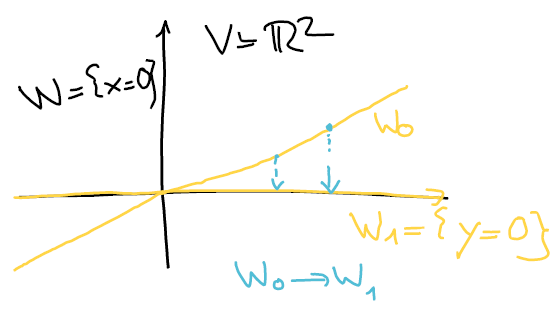 V = ℝ²
W = {x=0}
W₀
W₁ = {y=0}
W₀ → W₁